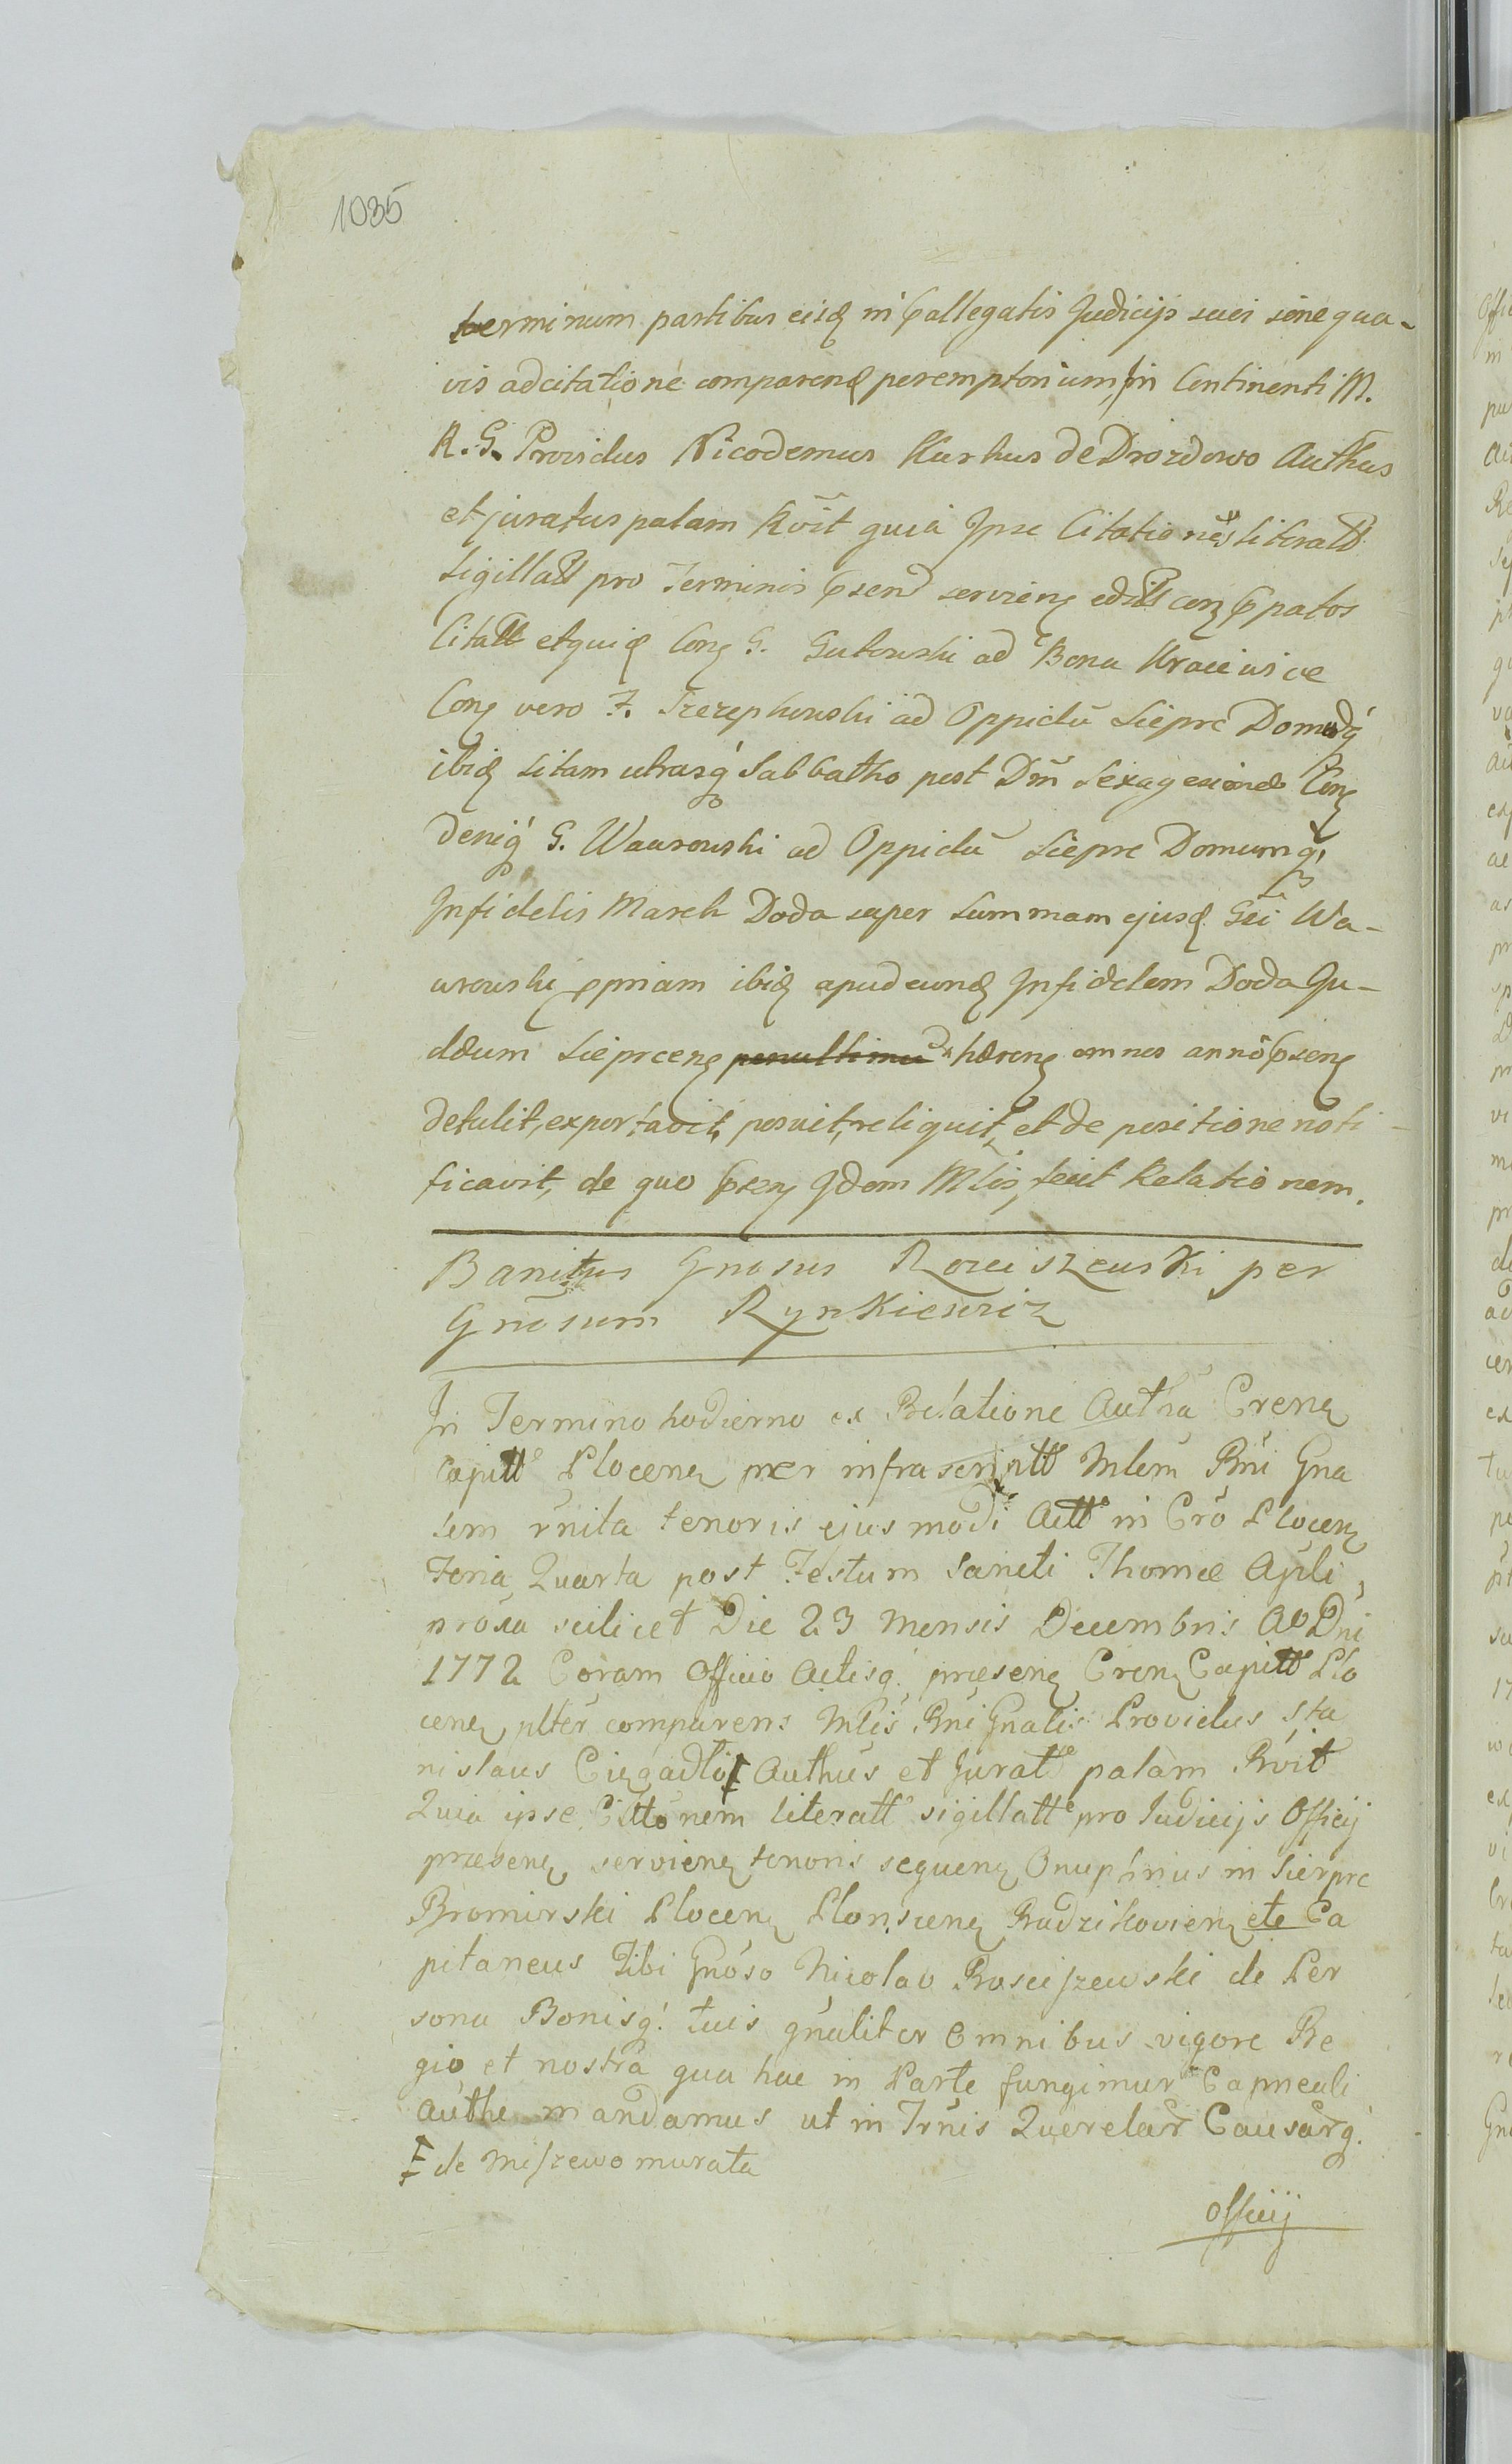 1035
terminum partibus eisq in pallegatis Judicijs suis sine qua-
vis adcitatione comparenq peremptorium, in Continenti M.
R. G. Providus Nicodemus Kurkus de Drozdowo Authus
et juratus palam Rvit quia Ipse Citationes literatt
sigillatt pro Terminis psenq servienq cenq ppatos
Citatt et quiq Conq G. Gutowski ad Bona
Conq vero F. Szczepkowski ad Oppidū Siepre Domūq
ibiq sitam utrasq Sabbatho post Dm Sexagesimae Conq
deniq G. Wawrowski ad Oppidū Siepre Domumq
Infidelis Marek Doda super summam ejusq Gsi Wa-
wrowski ppriam ibiq apud eunq Infidelem Doda Ju-
dæum Sieprcenq penultimū hærenq omnes anno psenq
detulit, exportavit, posuit, reliquit, et de positione noti-
ficavit, de quo psenq Idem Mlis, fecit Relationem.
Banitus Gnosus Rosciszewski per
Gnosum Rynkiewicz
In Termino hodierno ex Relatione Autha Crenq
Capitt Plocenq per infrascriptt Mlem Rni Gna
lem rnita tenoris ejusmodi Actt in Cro Plocenq
Feria Quarta post Festum Sancti Thomæ Apli,
proxa scilicet Die 23 Mensis Decembris Ao Dni
1772 Coram Officio Actisq. præsenq Crenq Capitt Plo
cenq plter comparens Mlis Rni Gnalis Providus Sta
nislaus Ciegadło Ŧ Authus et Juratt palam Rvit
Quia ipse Cittonem literatt sigillatt pro Judicijs Officij
præsenq servienq tenoris sequenq Onuphrius in Sierpre
Bromirski Plocenq Plonscenq Radzikovienq etc Ca
pitaneus Tibi Gnoso Nicolao Rosciszewski de Per
sona Bonisq. tuis gnaliter omnibus vigore Re
gio et nostra qua hac in Parte fungimur Capneali
Authe mandamus ut in Trnis Querelar Causarq.
Ŧ de Miszewo murata
Officij